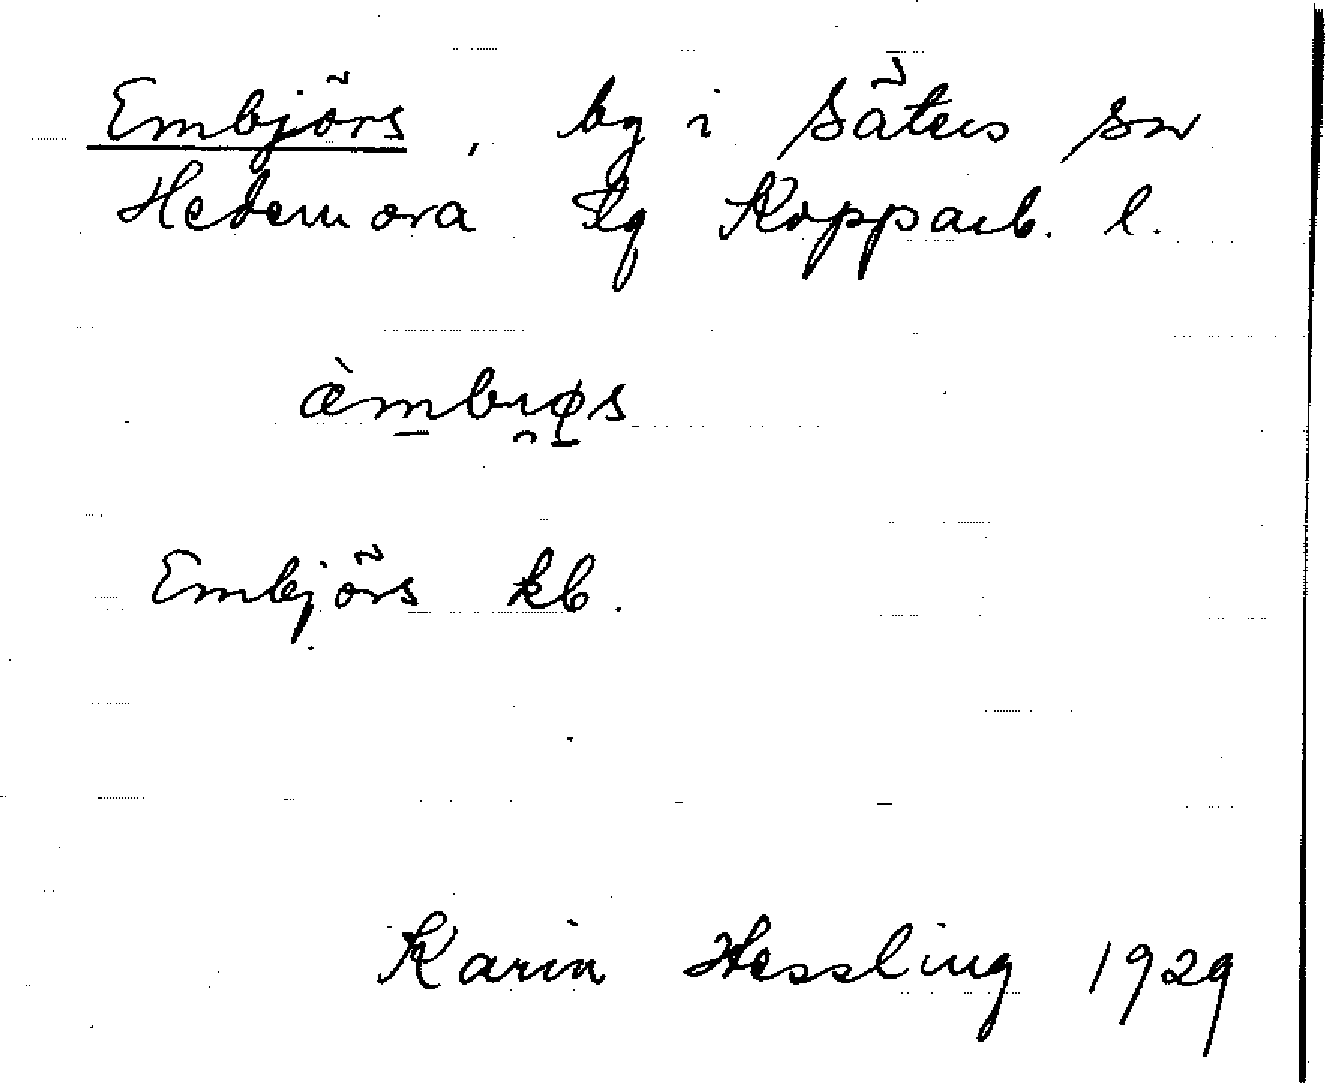 Embjörs, by i Säters sn
Hedemora tg Kopparb. l.
æ̀m̲bı̯ø̲s
Embjörs kb.
Karin Hessling 1929